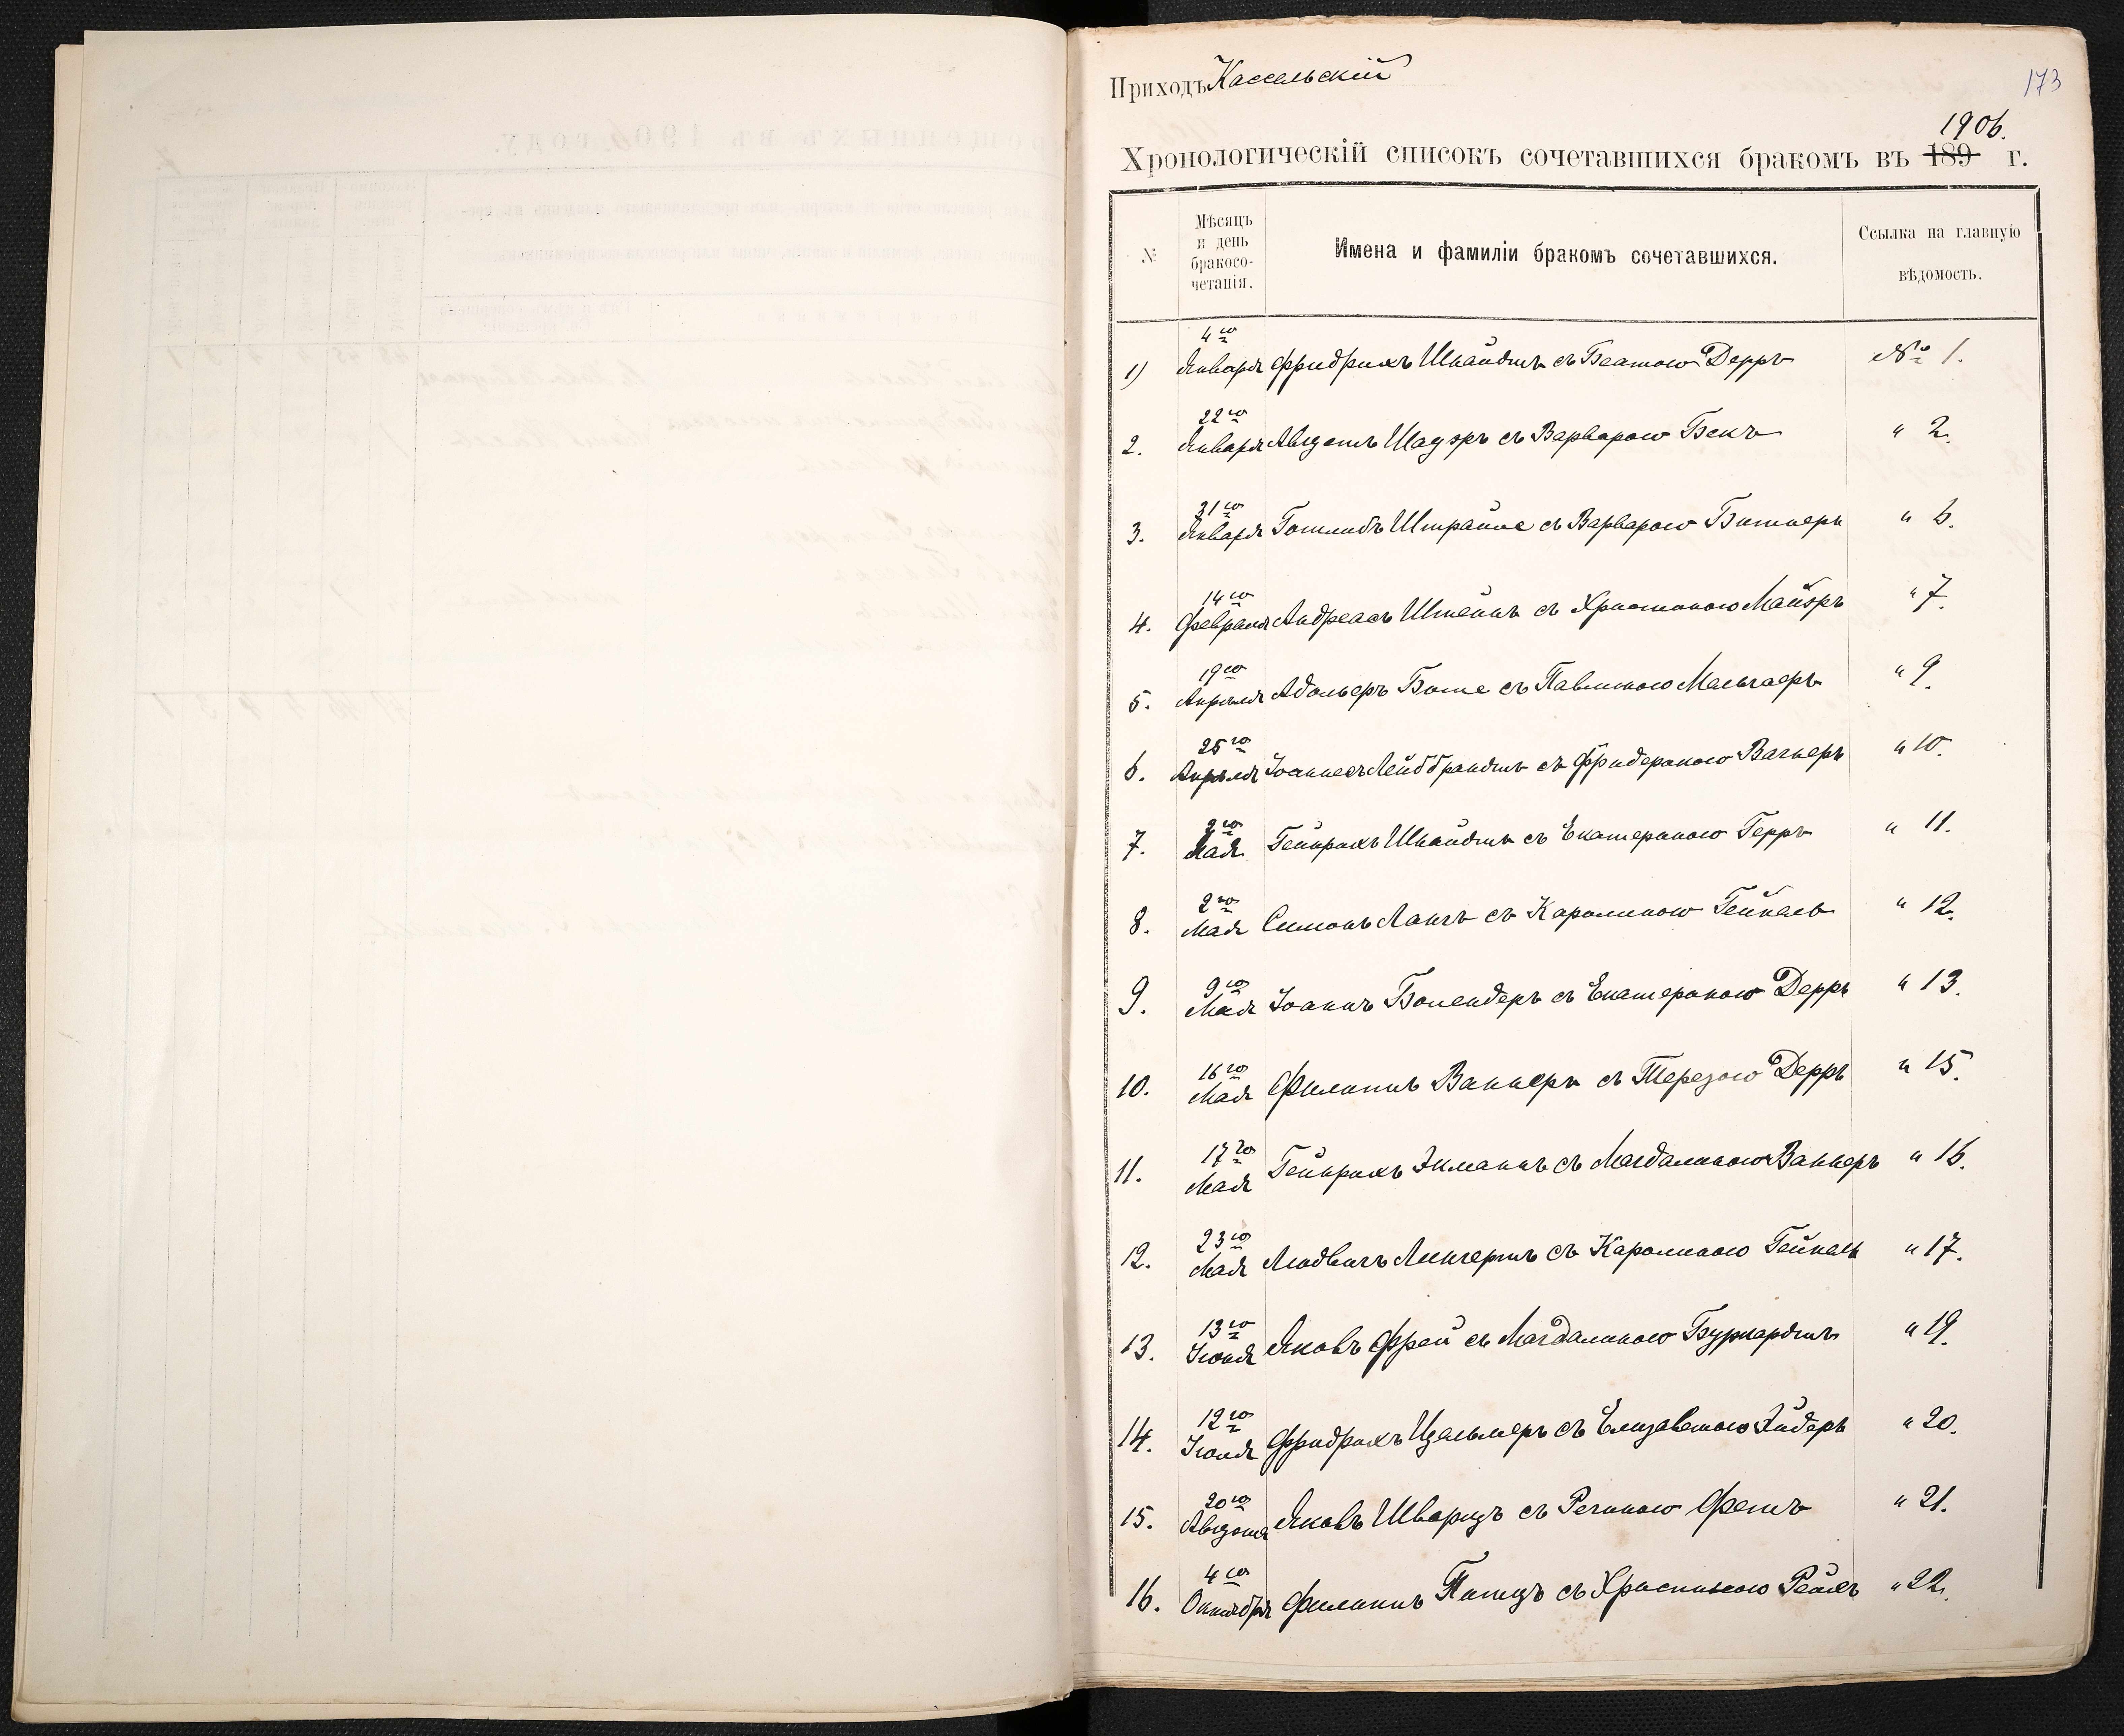 Приходъ Кассельскій
173
1906.
Хронологическій списокъ сочетавшихся бракомъ въ 189 г.
№
Мѣсяцъ
и день
бракосо-
четанія.
Имена и фамиліи бракомъ сочетавшихся.
Ссылка на главную
вѣдомость.
4го
1) Января Фридрихъ Шнайдтъ съ Беатою Дерръ № 1.
22го
2. Января Августъ Шауэръ съ Варварою Бекъ " 2.
31го
3. Января Готлибъ Штрайле съ Варварою Битнеръ " 6.
14го
4. Февраля Андреасъ Штейнъ съ Христиною Майэръ " 7.
19го
5. Апрѣля Адольфъ Боше съ Павлиною " 9.
25го
6. Апрѣля Іоаннесъ Лейббрандтъ съ Фридерикою Вагнеръ " 10.
2го
7. Мая Гейнрихъ Шнайдтъ съ Екатериною Герръ " 11.
2го
8. Мая Симонъ Лангъ съ Каролиною Гейнель " 12.
9го
9. Мая Іоаннъ Боллендеръ съ Екатериною Дерръ " 13.
16го
10. Мая Филиппъ Ваннеръ съ Терезою Дерръ " 15.
17го
11. Мая Гейнрихъ Экманнъ съ Магдалиною Ваннеръ " 16.
23го
12. Мая Людвигъ Лингертъ съ Каролиною Гейнель " 17.
13го
13. Іюня Яковъ Фрей съ Магдалиною Бургардтъ " 19.
12го
14. Іюня Фридрихъ Цельмеръ съ Елизаветою " 20.
20го
15. Августа Яковъ Шварцъ съ Региною Фетъ " 21.
4го
16. Октября Филиппъ съ Христиною Рейхъ " 22.